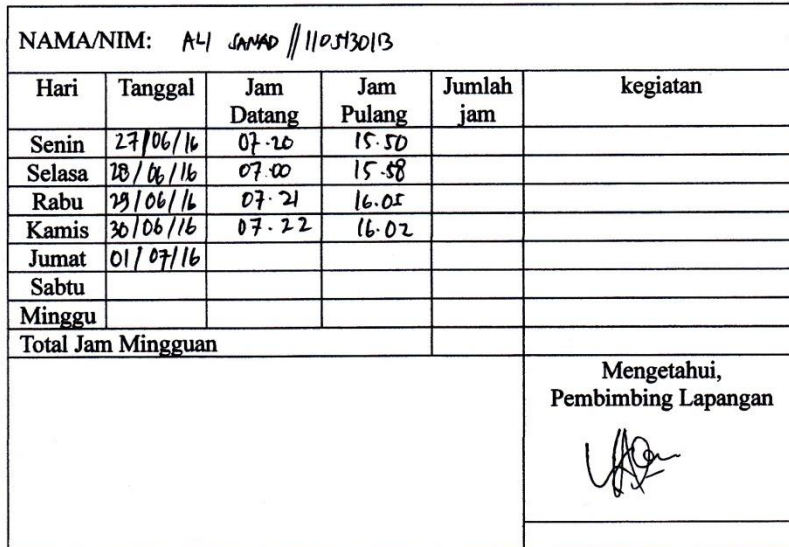 NAMA/NIM: ALI SANAD // 1105130113
Hari Tanggal Jam Datang Jam Pulang Jumlah jam kegiatan
Senin 27/06/16 07.20 15.50
Selasa 28/06/16 07.00 15.58
Rabu 29/06/16 07.21 16.05
Kamis 30/06/16 07.22 16.02
Jumat 01/07/16
Sabtu
Minggu
Total Jam Mingguan
Mengetahui,
Pembimbing Lapangan